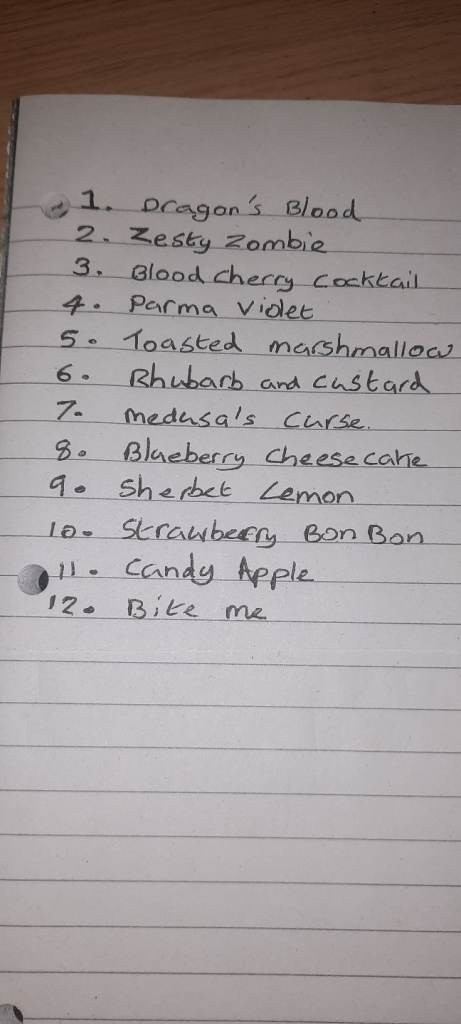 1. Dragon's Blood
2. Zesty Zombie
3. Blood Cherry Cocktail
4. Parma Violet
5. Toasted marshmallow
6. Rhubarb and Custard
7. medusa's Curse.
8. Blueberry Cheesecake
9. Sherbet Lemon
10. Strawberry Bon Bon
11. Candy Apple
12. Bite me